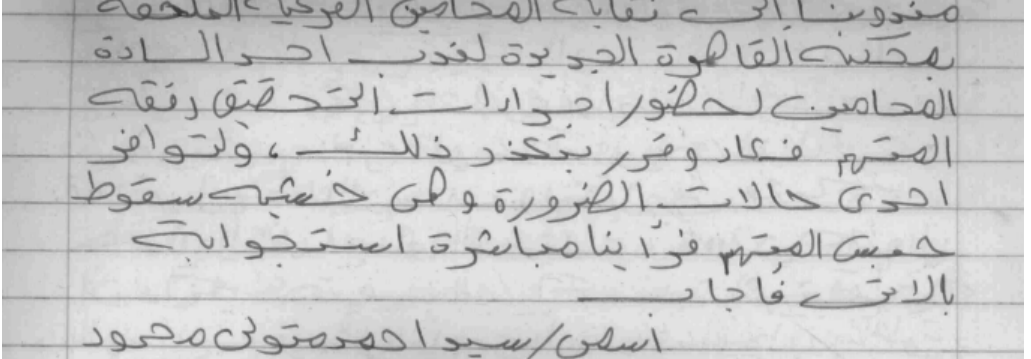 مندوبنا إلى نقابة المحامين الفرعية الملحقة
بمحكمة القاهرة الجديدة لندب احد السادة
المحامين لحضور اجراءات التحقيق رفقة
المتهم فعاد وقرر بتعذر ذلك ، ولتوافر
احدى حالات الضرورة وهى خشية سقوط
حبس المتهم فرأينا مباشرة استجوابة
بالاتى فأجاب
اسمى/ سيد احمد متولى محمود